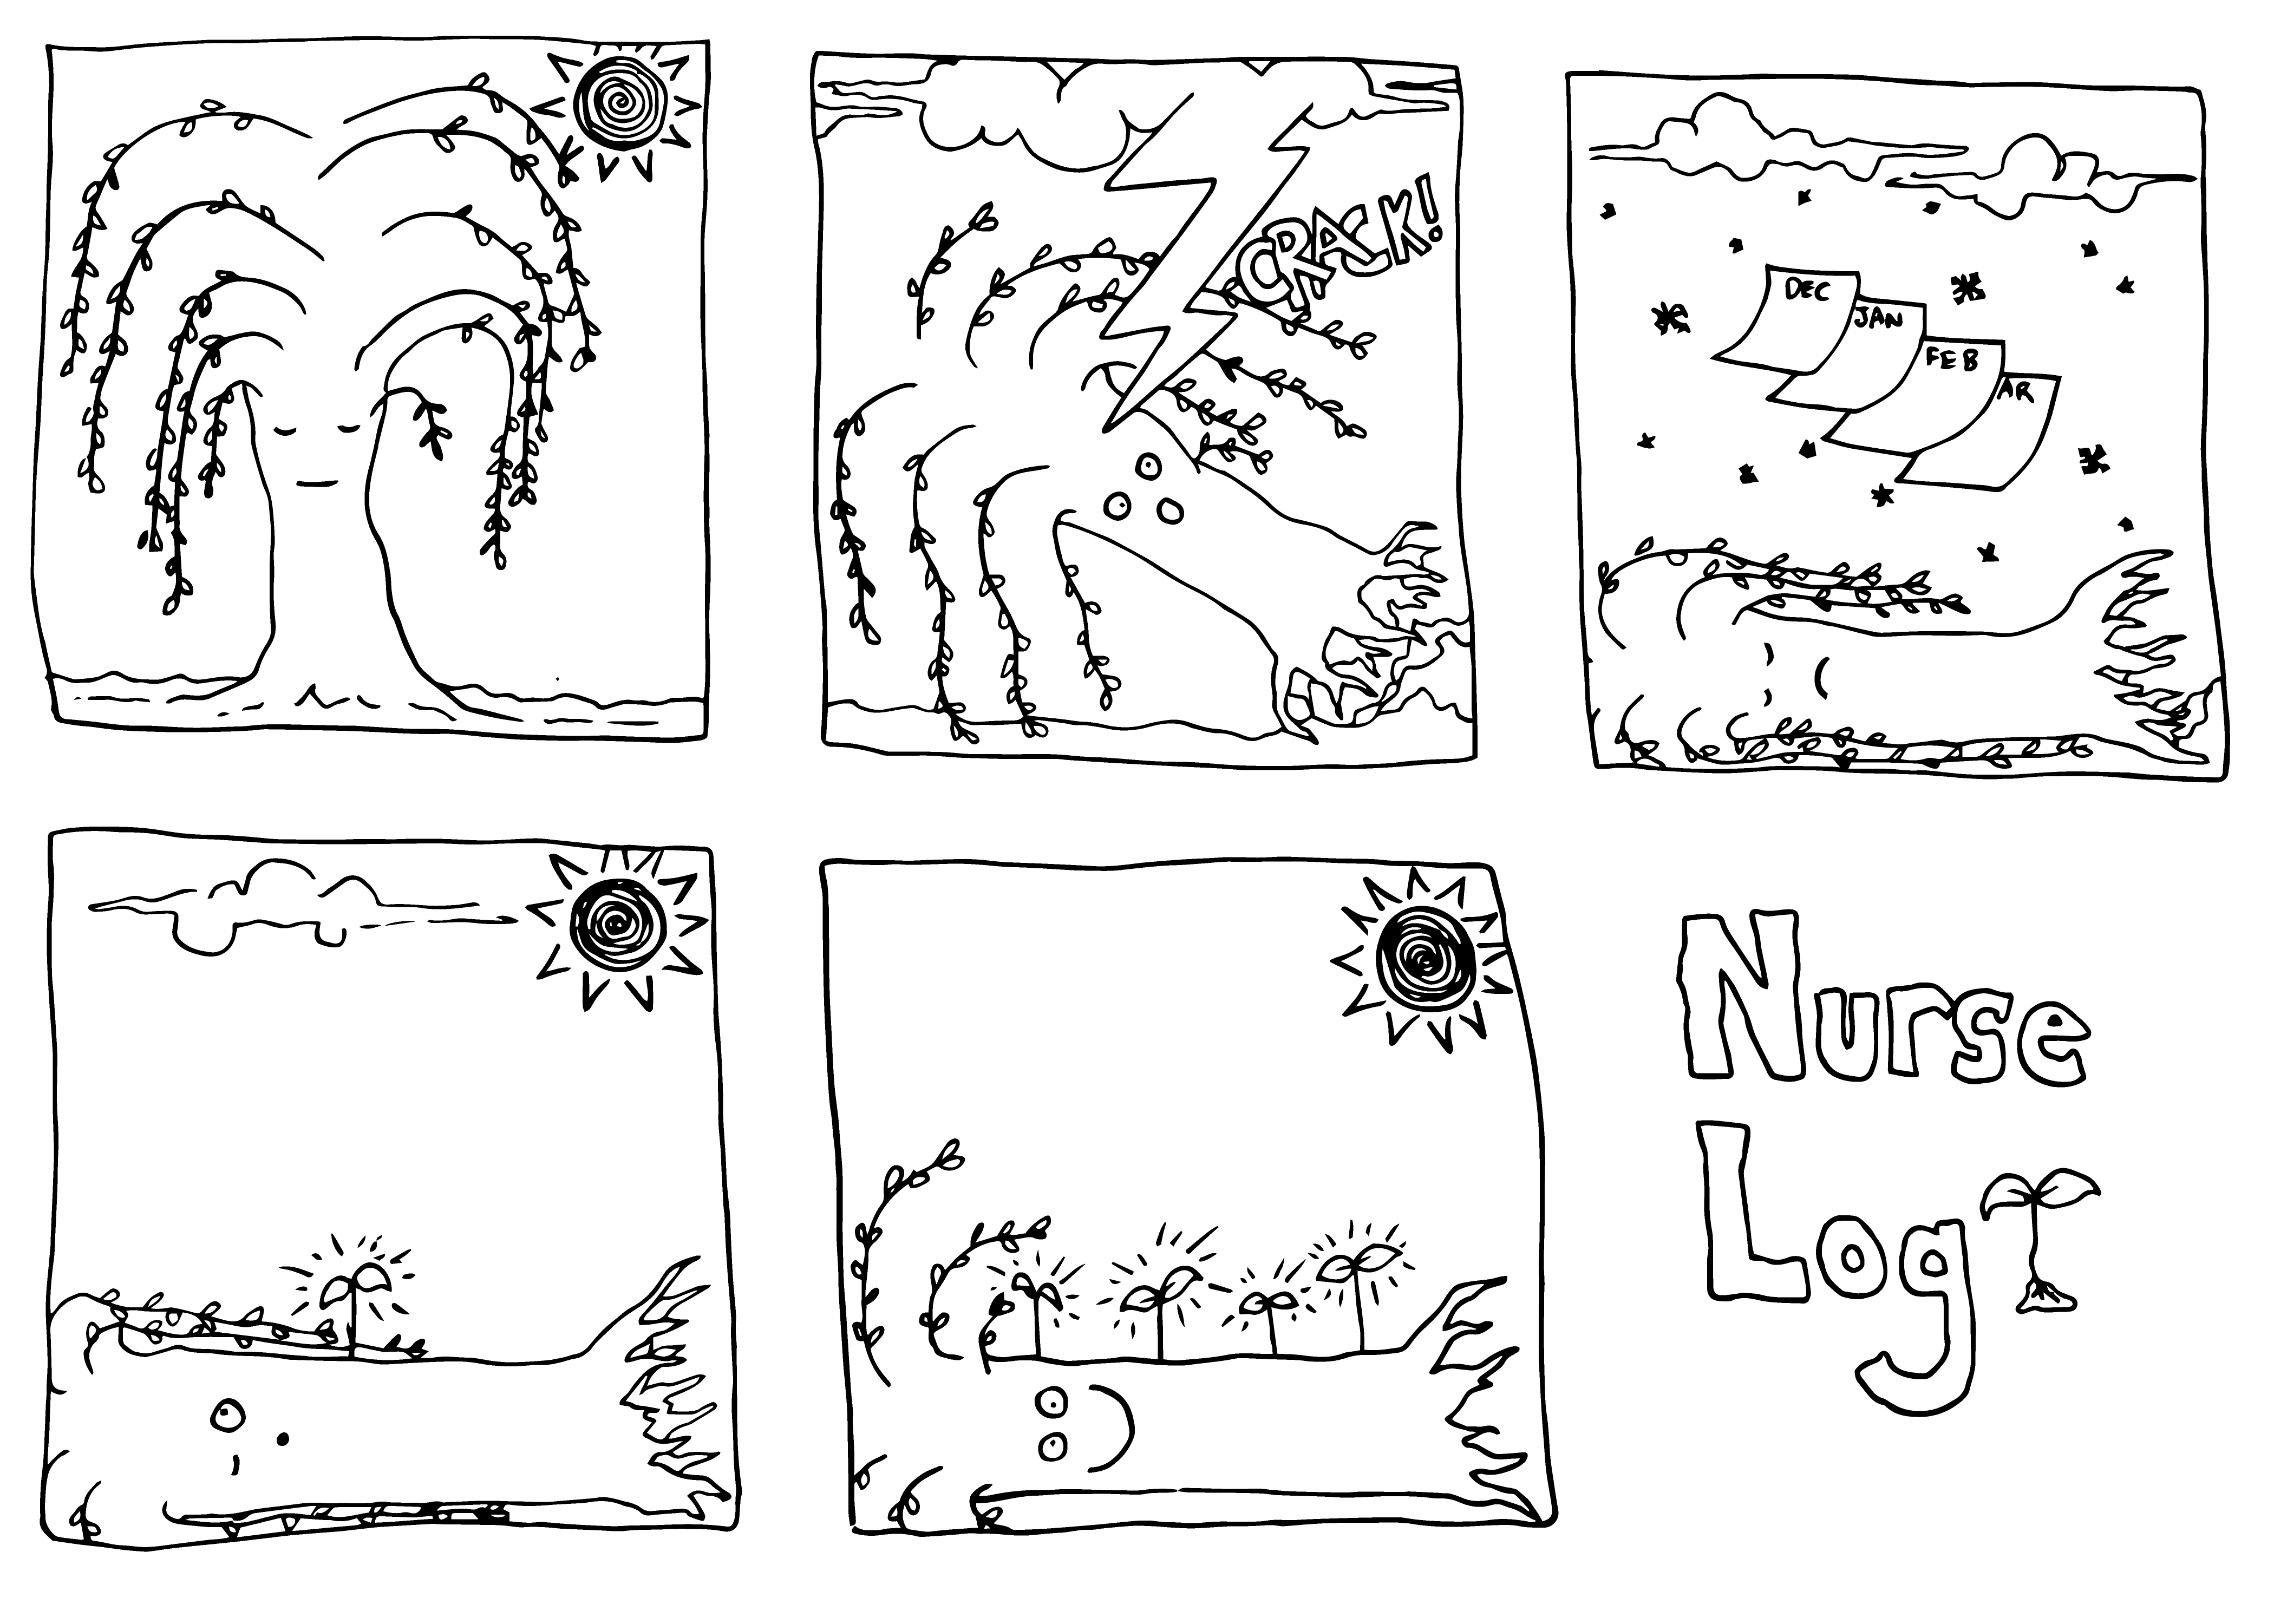 CRACK!
DEC
JAN
FEB
AR
Nurse
Log